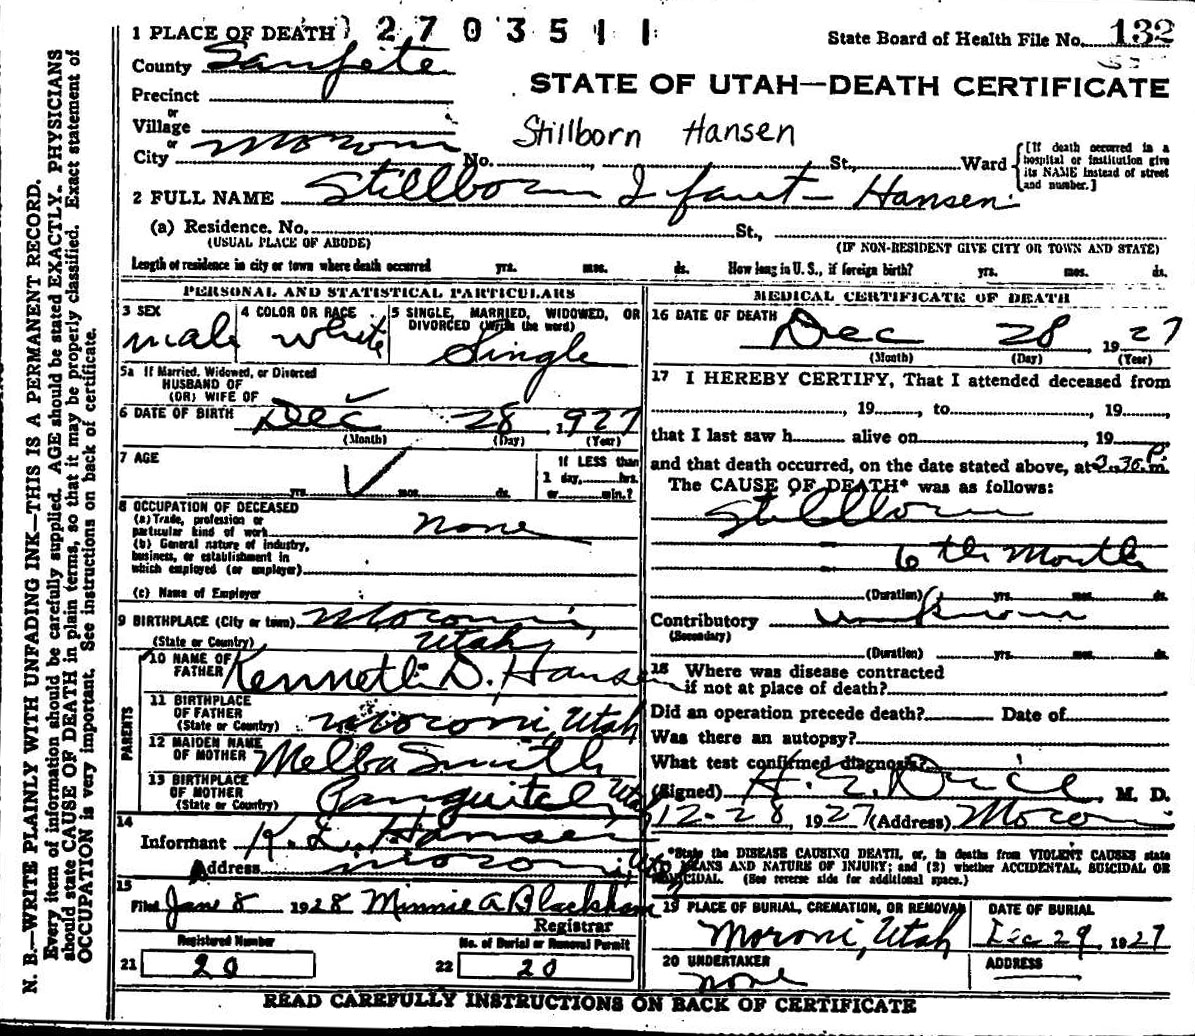 1 PLACE OF DEATH 2703511 State Board of Health File No. 132
County Sanpete
STATE OF UTAH—DEATH CERTIFICATE
Precinct
or
Village
or
Stillborn Hansen
City Moroni No. St., Ward [If death occurred in a hospital or institution give its NAME instead of street and number.]
2 FULL NAME Stillborn Infant Hansen
(a) Residence. No. St.,
(USUAL PLACE OF ABODE) (IF NON-RESIDENT GIVE CITY OR TOWN AND STATE)
Length of residence in city or town where death occurred yrs. mos. ds. How long in U. S., if foreign birth? yrs. mos. ds.
PERSONAL AND STATISTICAL PARTICULARS
3 SEX 4 COLOR OR RACE 5 SINGLE, MARRIED, WIDOWED, OR DIVORCED (Write the word)
male white Single
5a If Married, Widowed, or Divorced
HUSBAND OF
(OR) WIFE OF
6 DATE OF BIRTH Dec 28 1927
(Month) (Day) (Year)
7 AGE If LESS than
1 day, hrs.
yrs. mos. ds. or min.?
8 OCCUPATION OF DECEASED
(a) Trade, profession or
particular kind of work none
(b) General nature of industry,
business, or establishment in
which employed (or employer)
(c) Name of Employer
9 BIRTHPLACE (City or town) Moroni,
(State or Country) Utah
PARENTS
10 NAME OF
FATHER Kenneth D. Hansen
11 BIRTHPLACE
OF FATHER
(State or Country) Moroni, Utah
12 MAIDEN NAME
OF MOTHER Melba Smith
13 BIRTHPLACE
OF MOTHER
(State or Country) Panguitch Utah
14
Informant K. D. Hansen
Address Moroni, Utah
15
Filed Jane 8 1928 Minnie A Blackham
Registrar
Registered Number No. of Burial or Removal Permit
21 20 22 20
MEDICAL CERTIFICATE OF DEATH
16 DATE OF DEATH
Dec 28 1927
(Month) (Day) (Year)
17 I HEREBY CERTIFY, That I attended deceased from
, 19, to, 19,
that I last saw h alive on, 19
and that death occurred, on the date stated above, at 2.30 P m.
The CAUSE OF DEATH* was as follows:
Stillborn
6th Month
(Duration) yrs. mos. ds.
Contributory unknown
(Secondary)
(Duration) yrs. mos. ds.
18 Where was disease contracted
if not at place of death?
Did an operation precede death? Date of
Was there an autopsy?
What test confirmed diagnosis?
(Signed) H. E. M. D.
12-28, 1927 (Address) Moroni
*State the DISEASE CAUSING DEATH, or, in deaths from VIOLENT CAUSES state
MEANS AND NATURE OF INJURY; and (2) whether ACCIDENTAL, SUICIDAL OR
HOMICIDAL. (See reverse side for additional space.)
19 PLACE OF BURIAL, CREMATION, OR REMOVAL DATE OF BURIAL
Moroni, Utah Dec 29, 1927
20 UNDERTAKER ADDRESS
none
READ CAREFULLY INSTRUCTIONS ON BACK OF CERTIFICATE
N. B.—WRITE PLAINLY WITH UNFADING INK—THIS IS A PERMANENT RECORD.
Every item of information should be carefully supplied. AGE should be stated EXACTLY. PHYSICIANS
should state CAUSE OF DEATH in plain terms, so that it may be properly classified. Exact statement of
OCCUPATION is very important. See instructions on back of certificate.